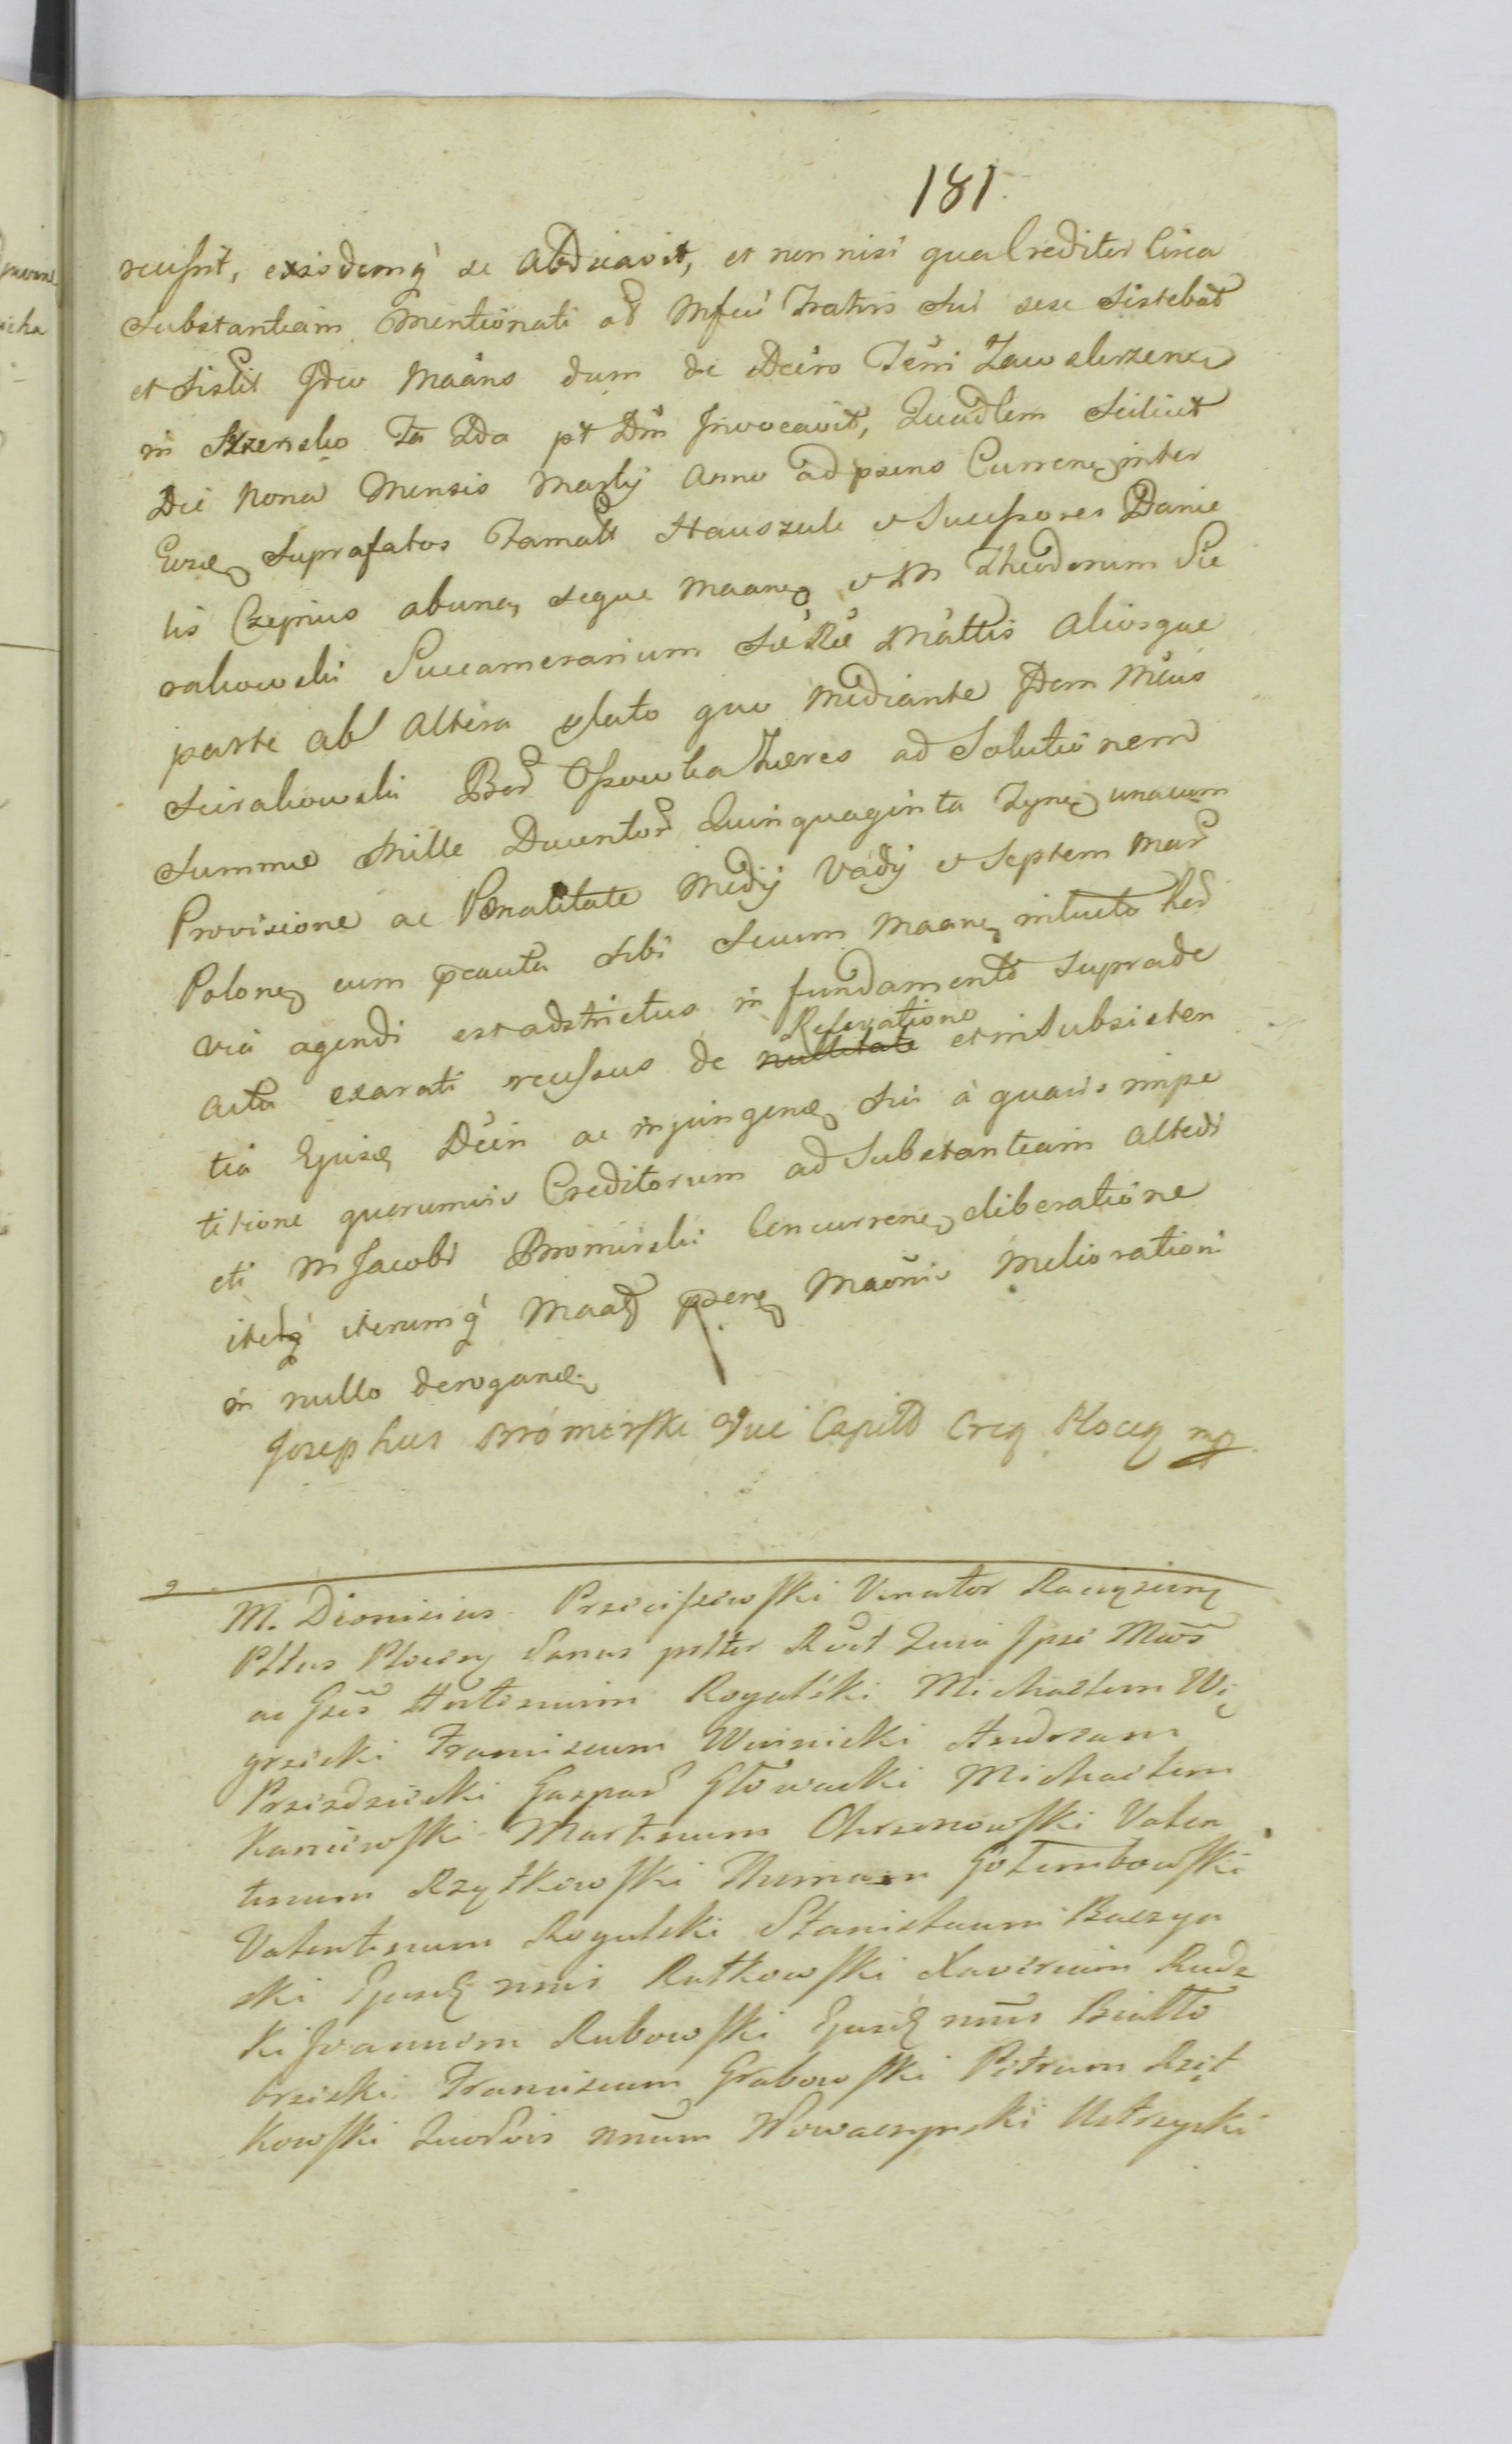 181.
recessit, exisdemq́ se Abdicavit, et non nisi qua Creditor Circa
Substantiam Mentionati ad Mfcui Fratris Sui sese Sistebat
et Sistit Ideo Maãns dum de Dcũro Terñi Zawskrzenẽ
in Szrensko Fa 2da pt Dm̃ Invocavit, Quadlem Scilicet
Die Nona Mensis Martij Anno ad psens Curren inter
Suprafatos Famatt Hauszule et Successores Danie
lis Czepius abuna, seque Maanẽ et M Theodorum Sie
rakowski Succamerarium Sæ Ræ Mattis Aliosque
parte ab Altera lato quo Mediante Idem Mcus
Seirakowski Bon Ossowka Hæres ad Solutionem
Summæ Mille Ducentor Quinquaginta Tynf unacum
Provisione ac Pœnalitate Medij Vadij et Septem Mar
Polon cum pcauta Sibi Suum Maane intuitu hod
via agendi est adstrictus in fundamento Suprade
Reservatione
acta exarati recessus de nullitate et insubsisten
tia Ejusẽ Dcin ac injungenẽ Sui à quavis impe
titione quorumvis Creditorum ad Substantiam alted
cti M Jacobi Bromirski Concurren, deliberatione
itelq́ iterumq́ Maad psenẽ Maoñis Meliorationi
in nullo derogandẽ.
Josephus Bromirski Vice Capitd Crcn Plocen mp

M. Dionisius Przeciszewski Venator Raciązinẽ
Pttus Plocen Sanus pttẽr Rcct Quia Ipse Mcus
ac Gses Antonium Rogulski Michaelem Wę
grzicki Franciscum Winnicki Andream
Przezdziecki Gaspar Głowacki Michaelem
Kaniewski Martinum Chrzanowski Valen
tinum Rzytkowski Thomam Gołembowski
Valentinum Rogulski Stanislaum Baczyn
ski Ejusd nnis Rutkowski Xaverium Rudz
ki Joannem Rubowski Ejusd nnis Biało
brzeski Franciscum Grabowski Petrum Rzęt
kowski Quodvis nnum Nowaczynski Ustrzycki